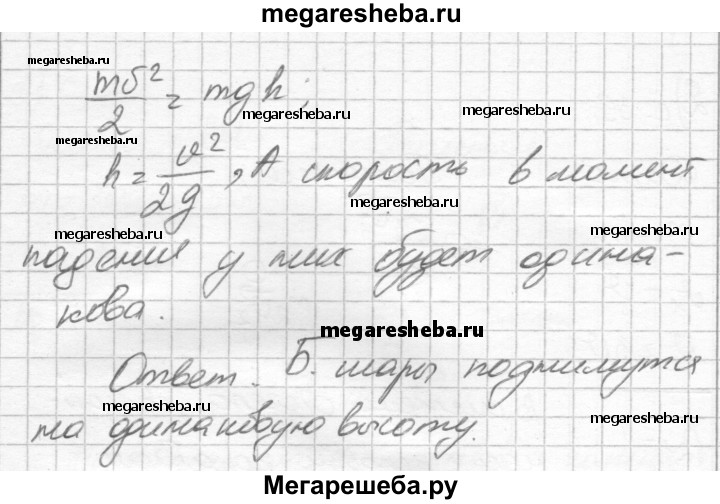 megaresheba.ru
megaresheba.ru megaresheba.ru
mv²/2 = mgh;
megaresheba.ru megaresheba.ru
megaresheba.ru
h = v²/2g, А скорость в момент
megaresheba.ru megaresheba.ru
megaresheba.ru megaresheba.ru
падения у них будет одина-
кова.
megaresheba.ru
Ответ. Б. шары поднимутся
megaresheba.ru megaresheba.ru
на одинаковую высоту.
Мегарешеба.ру